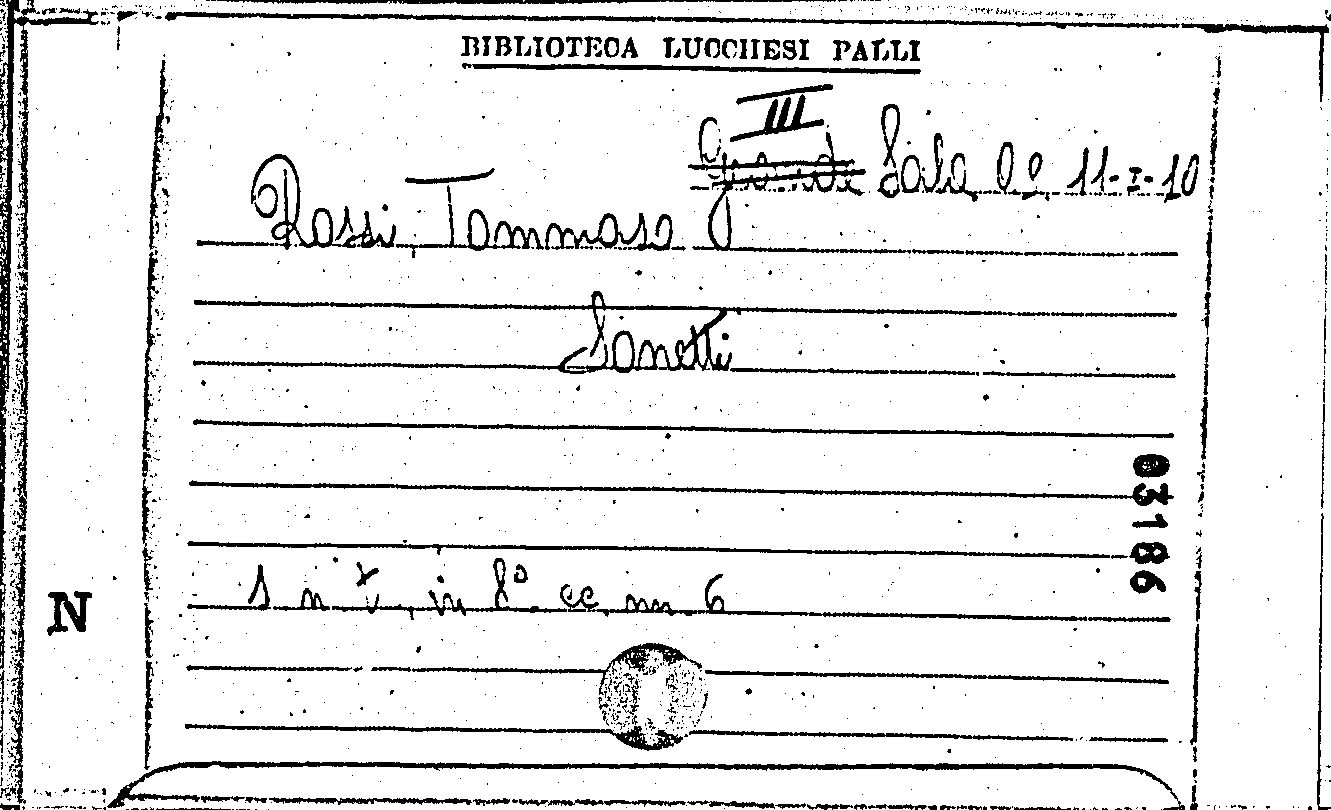 BIBLIOTECA LUCCHESI PALLI
III
Grande Sala Oº. 11-I-10
Rossi, Tommaso
Sonetti
03186
s. n. t., in 8º. cc. nn. 6
N